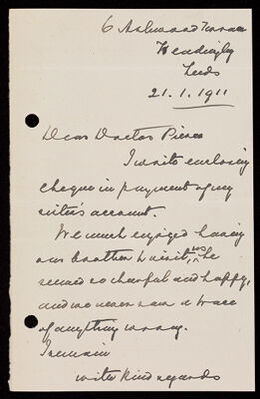 6 Ashwood Terrace
Headingley
Leeds
21.1.1911
Dear Doctor Pierce
I write enclosing
cheque in payment of my
sister's account.
We much enjoyed having
our brother to visit us, he
seemed so cheerful and happy,
and we never saw a trace
of anything wrong.
I remain
with kind regards